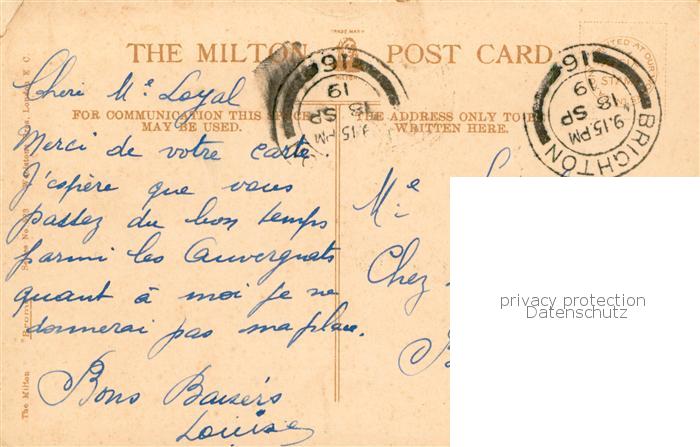 TRADE MARK
THE MILTON POST CARD
FOR COMMUNICATION THIS SPACE
MAY BE USED.
THE ADDRESS ONLY TO BE
WRITTEN HERE.
Cheri Me Loyal
Merci de votre carte.
J'espère que vous
passez du bon temps
parmi les Auvergnats
quant à moi je ne
donnerai pas ma place.
Bons Baisers
Louise
Me
Chez
9.15 PM
18 SP
19
16
BRIGHTON
9.15 PM
18 SP
19
16
The Milton
London E.C.
privacy protection
Datenschutz